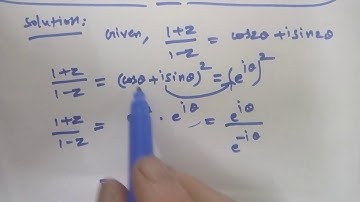 Solution: Given, (1+z)/(1-z) = cos2θ + i sin2θ
(1+z)/(1-z) = (cosθ + i sinθ)² = (e^{iθ})²
(1+z)/(1-z) = · e^{iθ} = e^{iθ}/e^{-iθ}